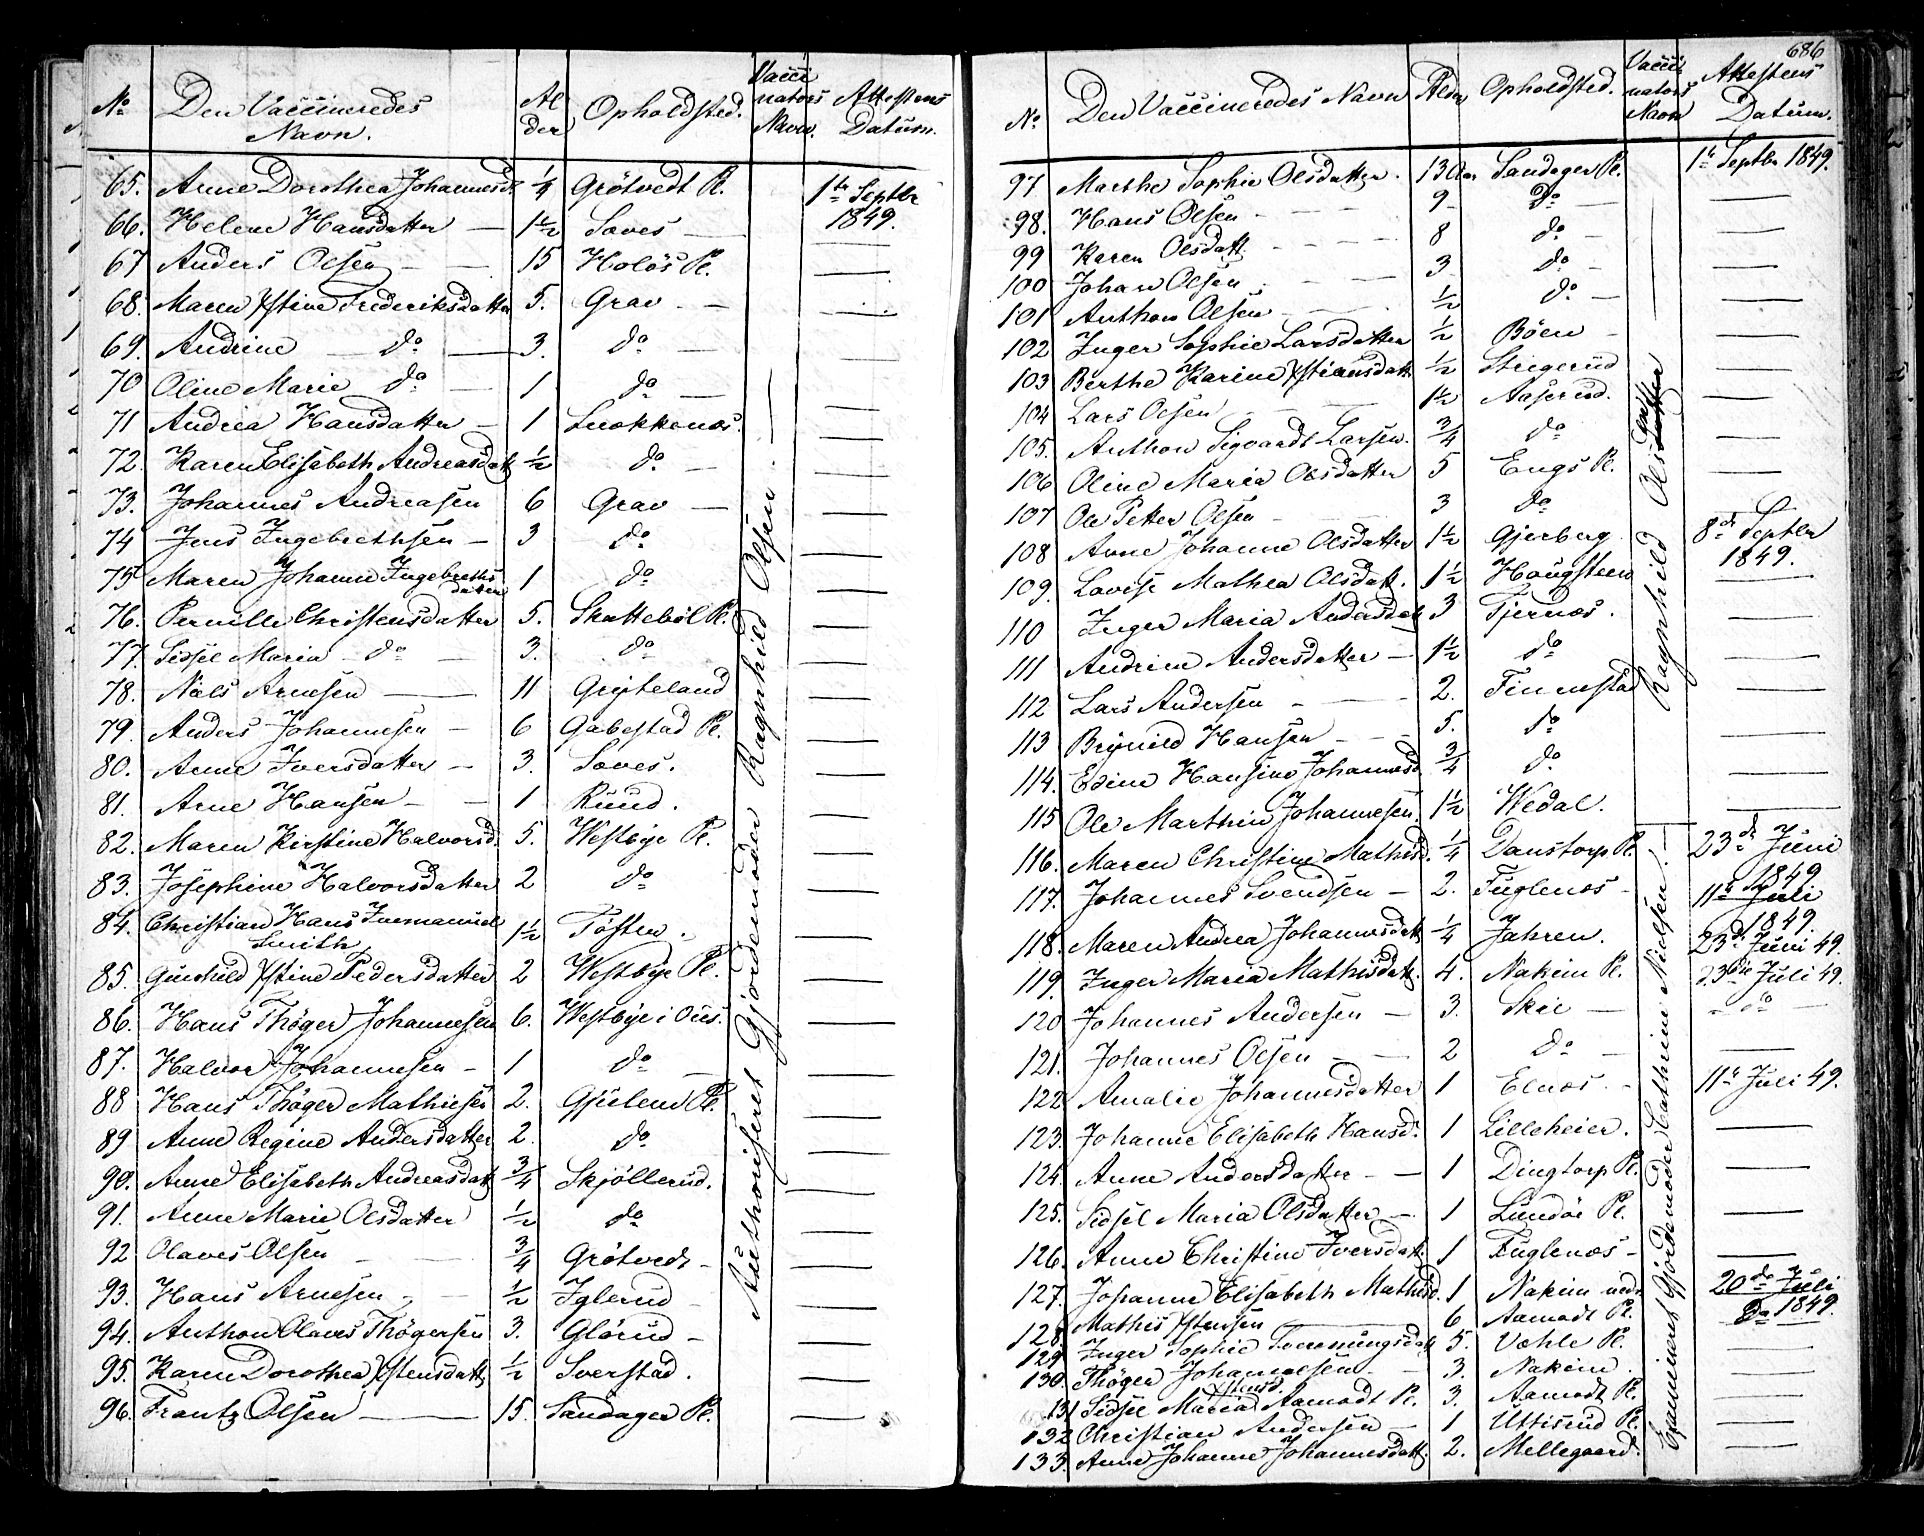 No Den Vaccineredes Navn. Alder Opholdsted. Vaccinators Navn. Attestens Datum.
65. Anne Dorothea Johannesd. 1/4 Grötvedt Pl. 1te Septbr 1849.
66. Helene Hansdatter — 1 1/2 Saves —
67 Anders Olsen — 15 Holös Pl. —
68. Maren Xstine Frederiksdatter 5. Grav —
69. Andrine do — 3. do —
70 Oline Marie do — 1 do —
71 Andrea Hansdatter — 1 —
72. Karen Elisabeth Andreasdatt 1/2 do —
73. Johannes Andreasen 6 Grav —
74 Jens Ingebrethsen — 3 do —
75 Maren Johanne Ingebrethsdatter 1 do —
76. Pernille Christensdatter 5. Skuttebøl Pl. —
77. Sidsel Maria do — 3. do —
78. Niels Arnesen — 11 Gryteland —
79. Anders Johannesen — 6 Gabestad Pl. —
80. Anne Iversdatter — 3. Saves. —
81. Arne Hansen — 1 Ruud. —
82. Maren Kirstine Halvorsd. 5. Westbye Pl. —
83. Josephine Halvorsdatter 2 do —
84. Christian Hans Immanuel Smith 1 1/2 Tosten. —
85. Gunhild Xstine Pedersdatter 2 Westbye Pl. —
86. Hans Thöger Johannesen 6. Westbye i Ous. —
87. Halvor Johannesen — 1 do —
88 Hans Thöger Mathiesen 2. Gjulem Pl. —
89 Anne Regine Andersdatter 2. do —
90. Anne Elisabeth Andreasdatt 3/4 Skjöllerud. —
91. Anne Marie Olsdatter 1/2 do —
92 Olaves Olsen — 3/4 Grötvedt —
93. Hans Arnesen — 1/2 Iglerud —
94. Anthon Olaves Thögersen 3. Glörud —
95. Karen Dorothea Xstensdatt 1/2 Sverstad. —
96. Frantz Olsen — 15. Sandager Pl. —
Authoriseret Gjordemoder Ragnhild Olsen. —
686
No Den Vaccineredes Navn Alder Opholdsted. Vaccinators Navn Attestens Datum.
97 Marthe Sophie Olsdatter. 13 Aar Sandager Pl. 1te Septbr 1849.
98. Hans Olsen — 9 do —
99 Karen Olsdatt — 8 do —
100 Johan Olsen — 3 do —
101 Anthon Olsen — 1/2 do —
102 Inger Sophie Larsdatter 1/2 Böen —
103 Berthe Karine Xstiansdatt 1/2 Stegerud —
104 Lars Olsen — 1 1/2 Aaserud. —
105. Anthon Sigvardt Larsen. 3/4 do —
106 Oline Maria Olsdatter 5 Engs Pl. —
107 Ole Petter Olsen — 3 do —
108 Anne Johanne Olsdatter 1 1/2 Gjerberg 8de Septbr 1849.
109. Lovise Mathea Olsdatt. 1 1/2 Hougsteen —
110 Inger Maria Andersdatt 3 Tjernæs. —
111 Andrine Andersdatter — 1 1/2 do —
112 Lars Andersen — 2. Finnestad —
113 Brynild Hansen — 5. do —
114. Edine Hansine Johannesd 3/4 do —
115 Ole Marthin Johannesen. 1 1/2 Wedal. —
Ragnhild Olsdatter
116. Maren Christine Mathisd. 1/4 Danstorp Pl. 23de Juni 1849
117. Johannes Svendsen — 2. Fuglenæs — 11te Juli 1849.
118. Maren Andrea Johannesdatt 1/4 Jahren. 23de Juni 49.
119. Inger Maria Mathisdatt. 4. Nakim Pl. 23de Juli 49.
120 Johannes Andersen — 3. Skie — do —
121. Johannes Olsen — 2 do —
122 Amalie Johannesdatter 1 Elnæs. — 11te Juli 49.
123. Johanne Elisabeth Hansd. 1 Lilleheier. —
124. Anne Andersdatter — 1 Dingtorp Pl. —
125. Sidsel Maria Olsdatter — 1 Lundöe Pl. —
126. Anne Christine Iversdatt. 1 Fuglenæs —
127. Johanne Elisabeth Mathisd. 1 Nakim nedr 20de Juli 1849.
128. Mathis Xstensen — 6 Aamodt Pl. Do —
129 Inger Sophie Svenningsdatt 5. Væhle Pl. —
130. Thöger Johannesen — 3. Nakim. —
131 Sidsel Maria Xstensd. Aamodt Pl. 3. Aamodt Pl. —
132 Christian Andersen — 1 Uttisrud Pl. —
133. Anne Johanne Johannesdatt. 2. Mellegaard. —
Examineret Gjordemoder Cathrine Nielsen. —